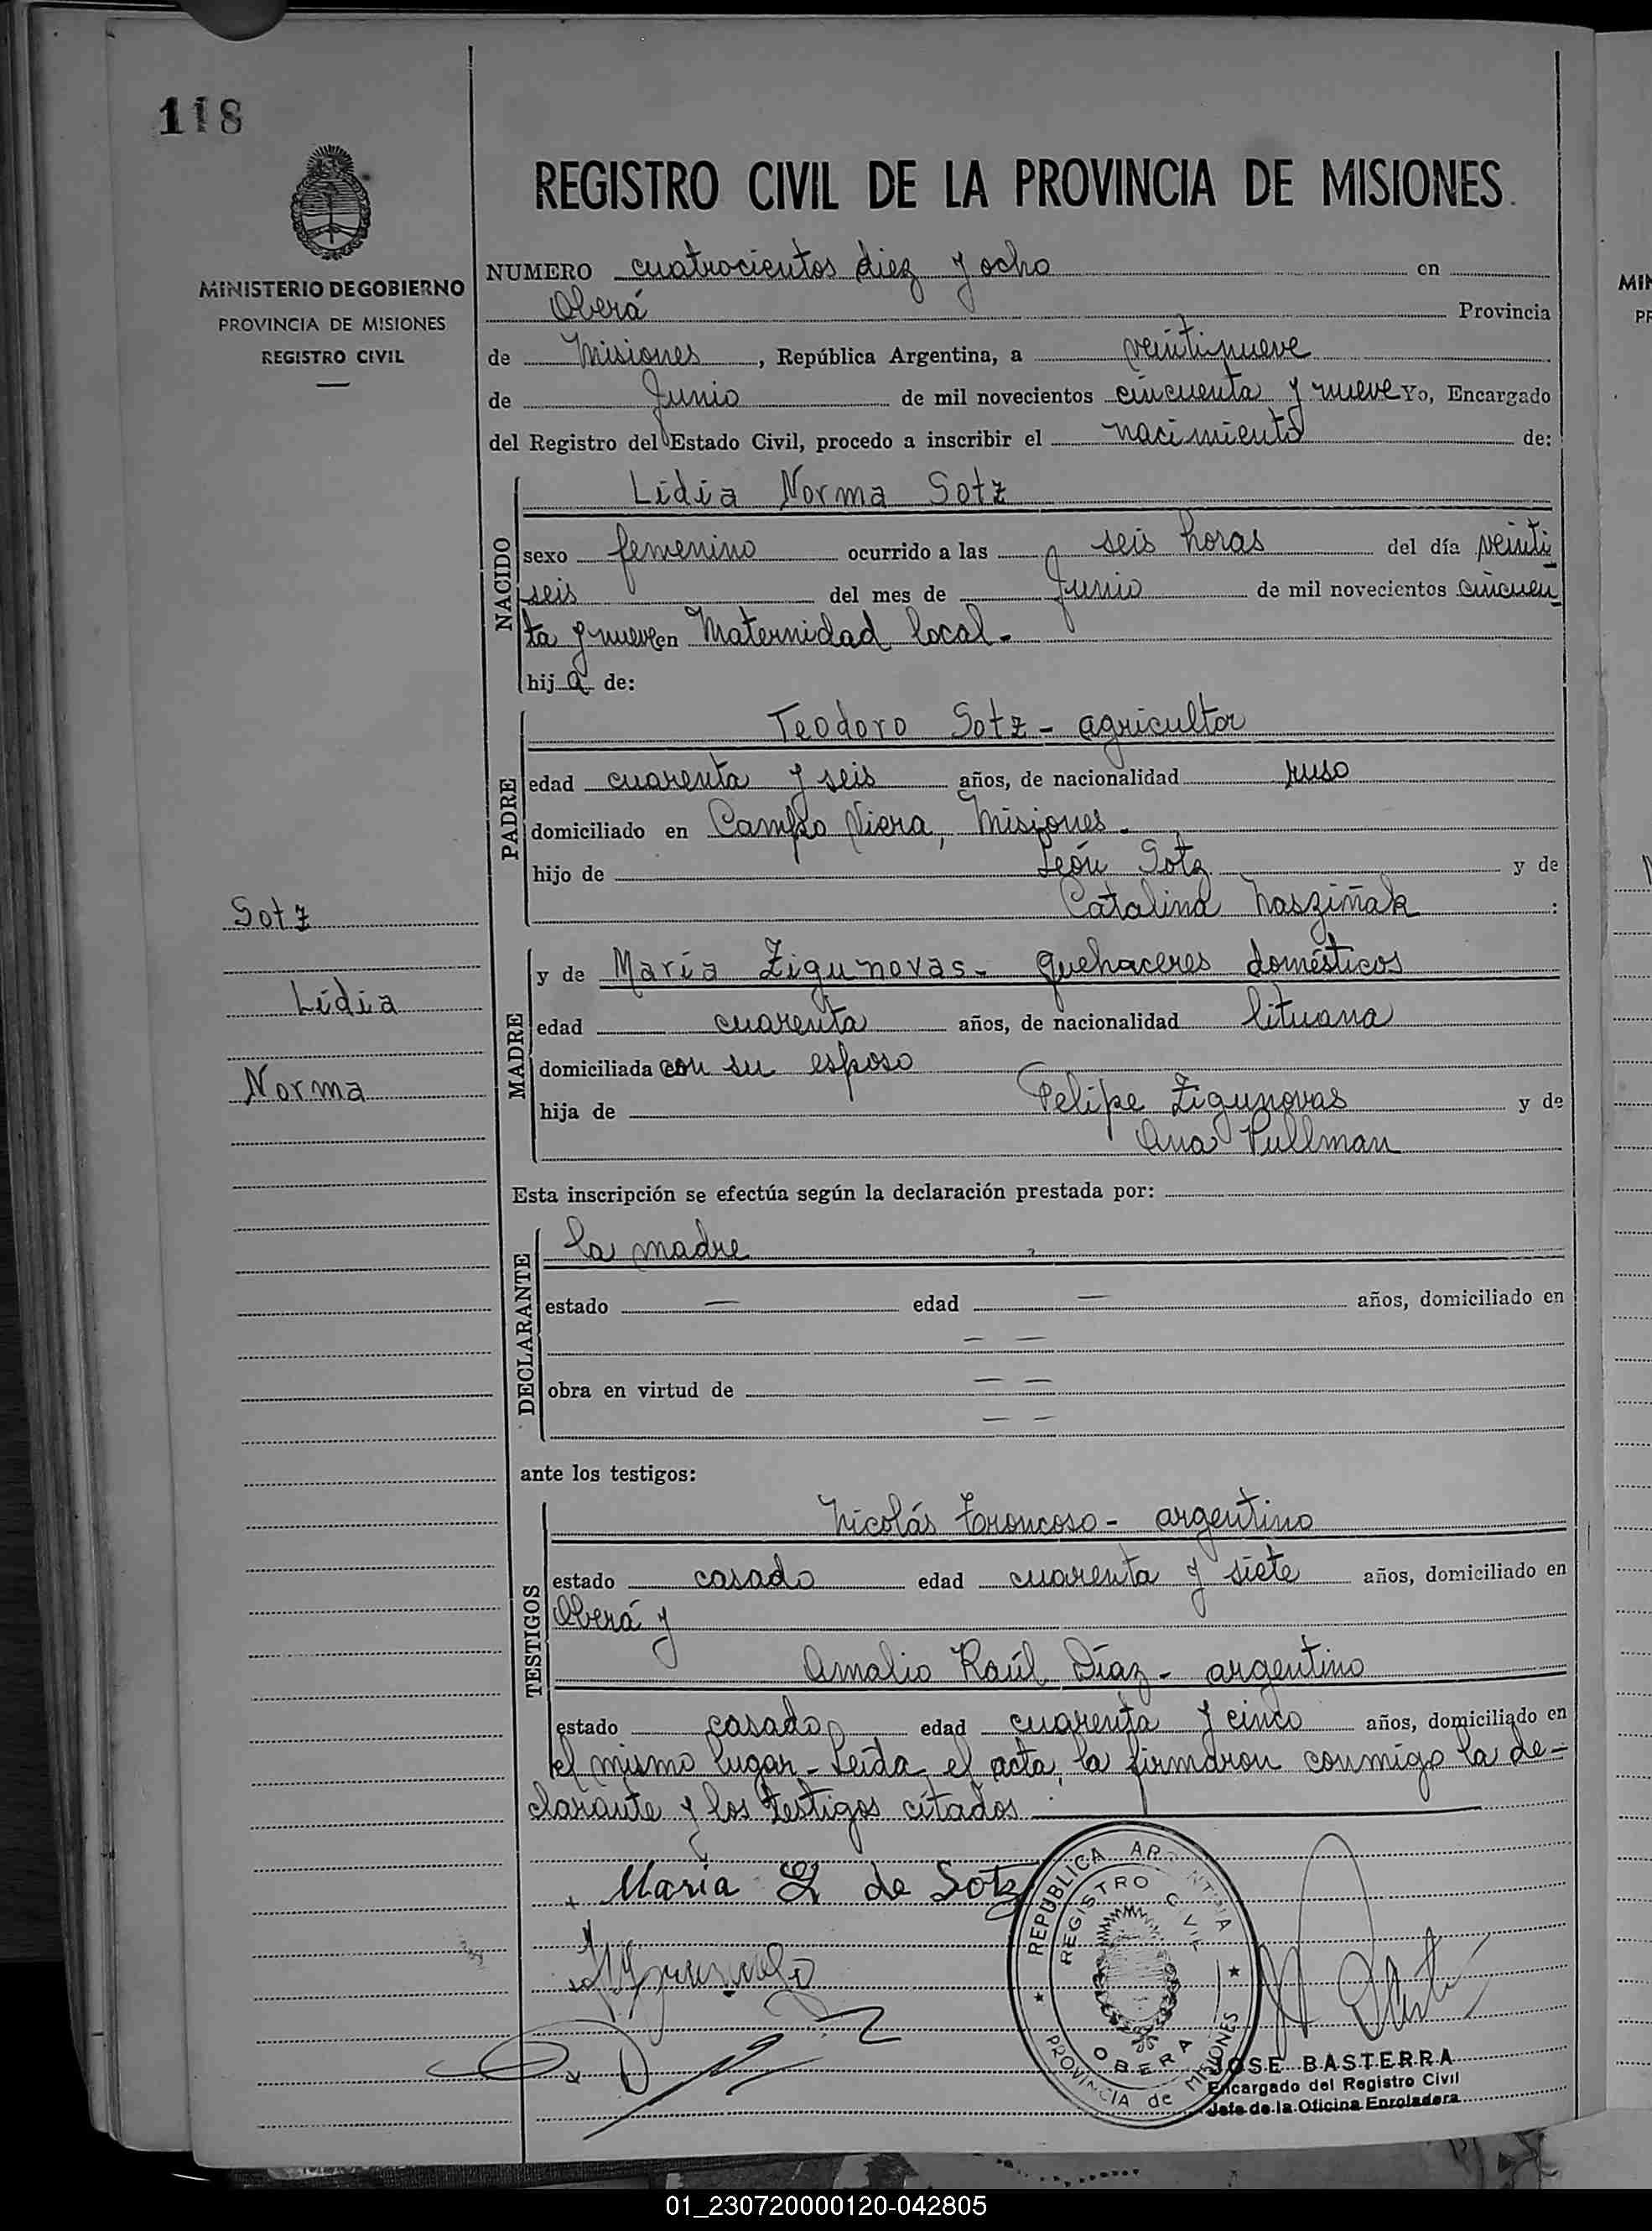 118
REGISTRO CIVIL DE LA PROVINCIA DE MISIONES.
MINISTERIO DE GOBIERNO
PROVINCIA DE MISIONES
REGISTRO CIVIL
NUMERO cuatrocientos diez y ocho en
Oberá Provincia
de Misiones, República Argentina, a veintinueve
de Junio de mil novecientos cincuenta y nueve Yo, Encargado
del Registro del Estado Civil, procedo a inscribir el nacimiento de:
NACIDO
Lidia Norma Sotz
sexo femenino ocurrido a las seis horas del día veinti
seis del mes de Junio de mil novecientos cincuen
ta y nueve en Maternidad local.-
hija de:
PADRE
Teodoro Sotz - agricultor
edad cuarenta y seis años, de nacionalidad ruso
domiciliado en Campo Viera, Misiones.
hijo de León Sotz y de
Catalina :
Sotz
Lidia
Norma
MADRE
y de María Zigunovas - quehaceres domésticos
edad cuarenta años, de nacionalidad lituana
domiciliada con su esposo
hija de Felipe Zigunovas y de
Ana Pullman
Esta inscripción se efectúa según la declaración prestada por:
DECLARANTE
la madre
estado — edad — años, domiciliado en
— —
obra en virtud de — —
— —
ante los testigos:
TESTIGOS
Nicolás Troncoso - argentino
estado casado edad cuarenta y siete años, domiciliado en
Oberá y
Amalio Raúl Díaz - argentino
estado casado edad cuarenta y cinco años, domiciliado en
el mismo lugar - Leída el acta, la firmaron conmigo la de-
clarante y los testigos citados.
María Z de Sotz
REPUBLICA ARGENTINA
REGISTRO CIVIL
OBERA
PROVINCIA de MISIONES
JOSE BASTERRA
Encargado del Registro Civil
Jefe de la Oficina Enroladora
01_230720000120-042805